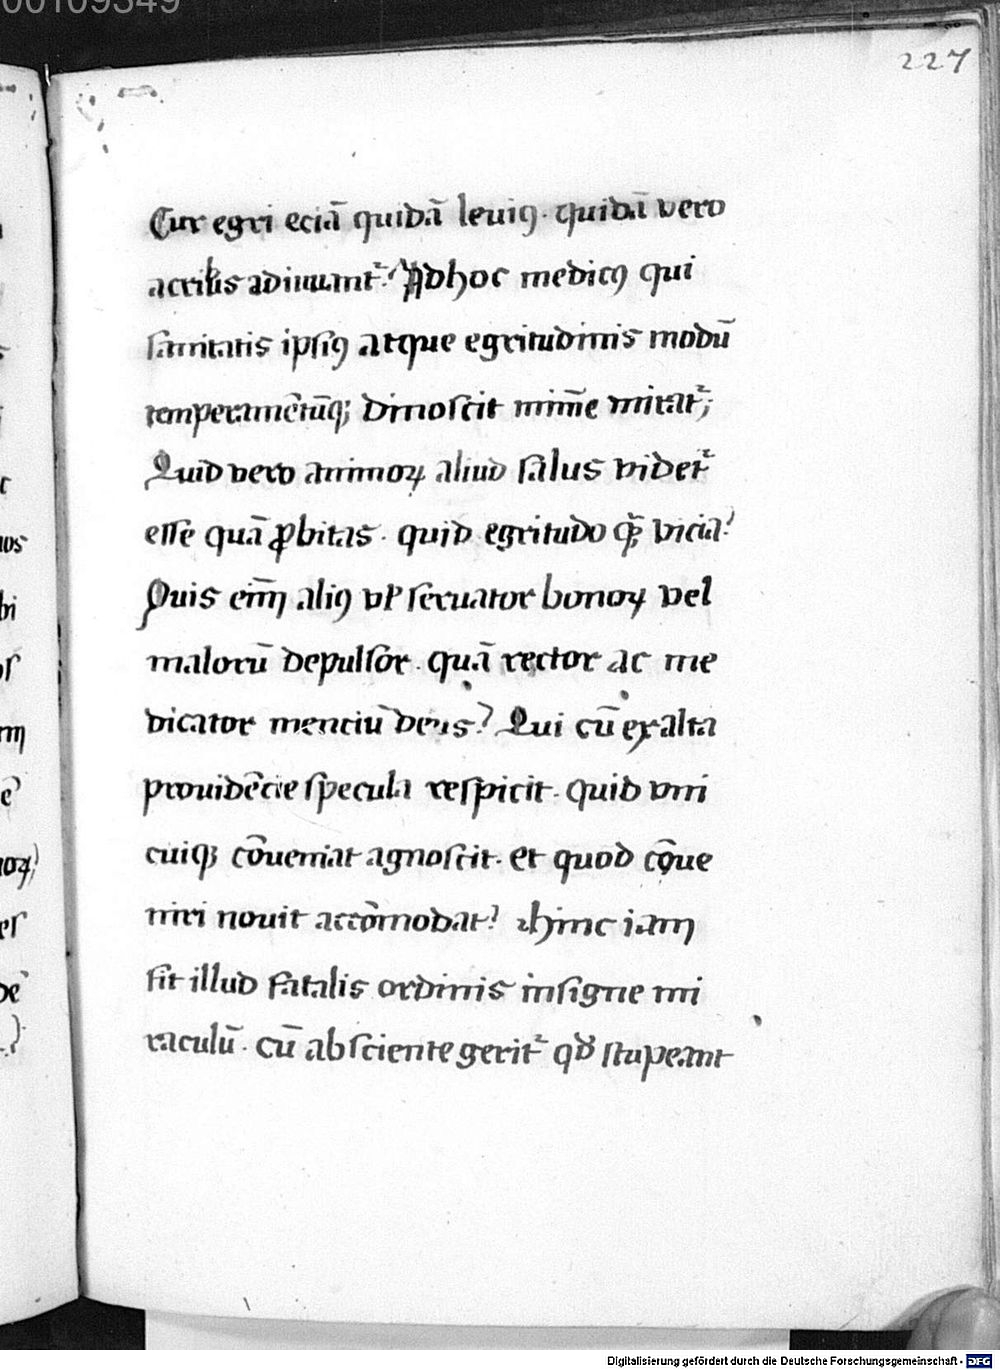 00109349
227
Cur egri eciā quidā leuiꝯ · quidā vero
acribꝫ adiuuant᷑? Adhoc medicꝯ qui
sanitatis ipsiꝯ atque egritudinis modū
temperamētūqꝫ dinoscit minīe mirat᷑;
Quid vero animoꝝ aliud salus videt᷑
esse quā ꝓbitas · quid egritudo qꝫ vicia?
Quis eīm aliꝯ vł seruator bonoꝝ vel
malorū depulsor · quā rector ac me
dicator menciū deus? Qui cū ex alta
prouidēcie specula respicit · quid vni
cuiqꝫ cōueniat agnoscit · et quod cōue
niri nouit accōmodat? Hinc iam
fit illud fatalis ordinis insigne mi
raculū · cū ab sciente gerit᷑ qđ stupeant
uos
bi
oꝝ
es
Digitalisierung gefördert durch die Deutsche Forschungsgemeinschaft - DFG